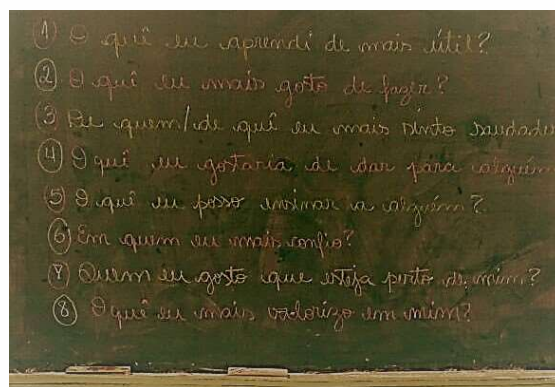 1 O quê eu aprendi de mais útil?
2 O quê eu mais gosto de fazer?
3 De quem/de quê eu mais sinto saudade
4 O quê eu gostaria de dar para alguém
5 O quê eu posso ensinar a alguém?
6 Em quem eu mais confio?
7 Quem eu gosto que esteja perto de mim?
8 O quê eu mais valorizo em mim?